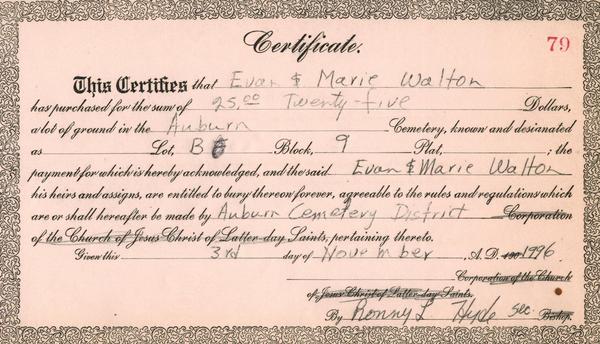 Certificate. 79
This Certifies that Evan & Marie Walton
has purchased for the sum of 25.00 Twenty-five Dollars,
a lot of ground in the Auburn Cemetery, known and designated
as Lot, B Block, 9 Plat, ; the
payment for which is hereby acknowledged, and the said Evan & Marie Walton
his heirs and assigns, are entitled to bury thereon forever, agreeable to the rules and regulations which
are or shall hereafter be made by Auburn Cemetery District Corporation
of the Church of Jesus Christ of Latter-day Saints, pertaining thereto.
Given this 3rd day of November A.D. 190 1996.
Corporation of the Church
of Jesus Christ of Latter-day Saints.
By Ronny L Hyde sec Bishop.